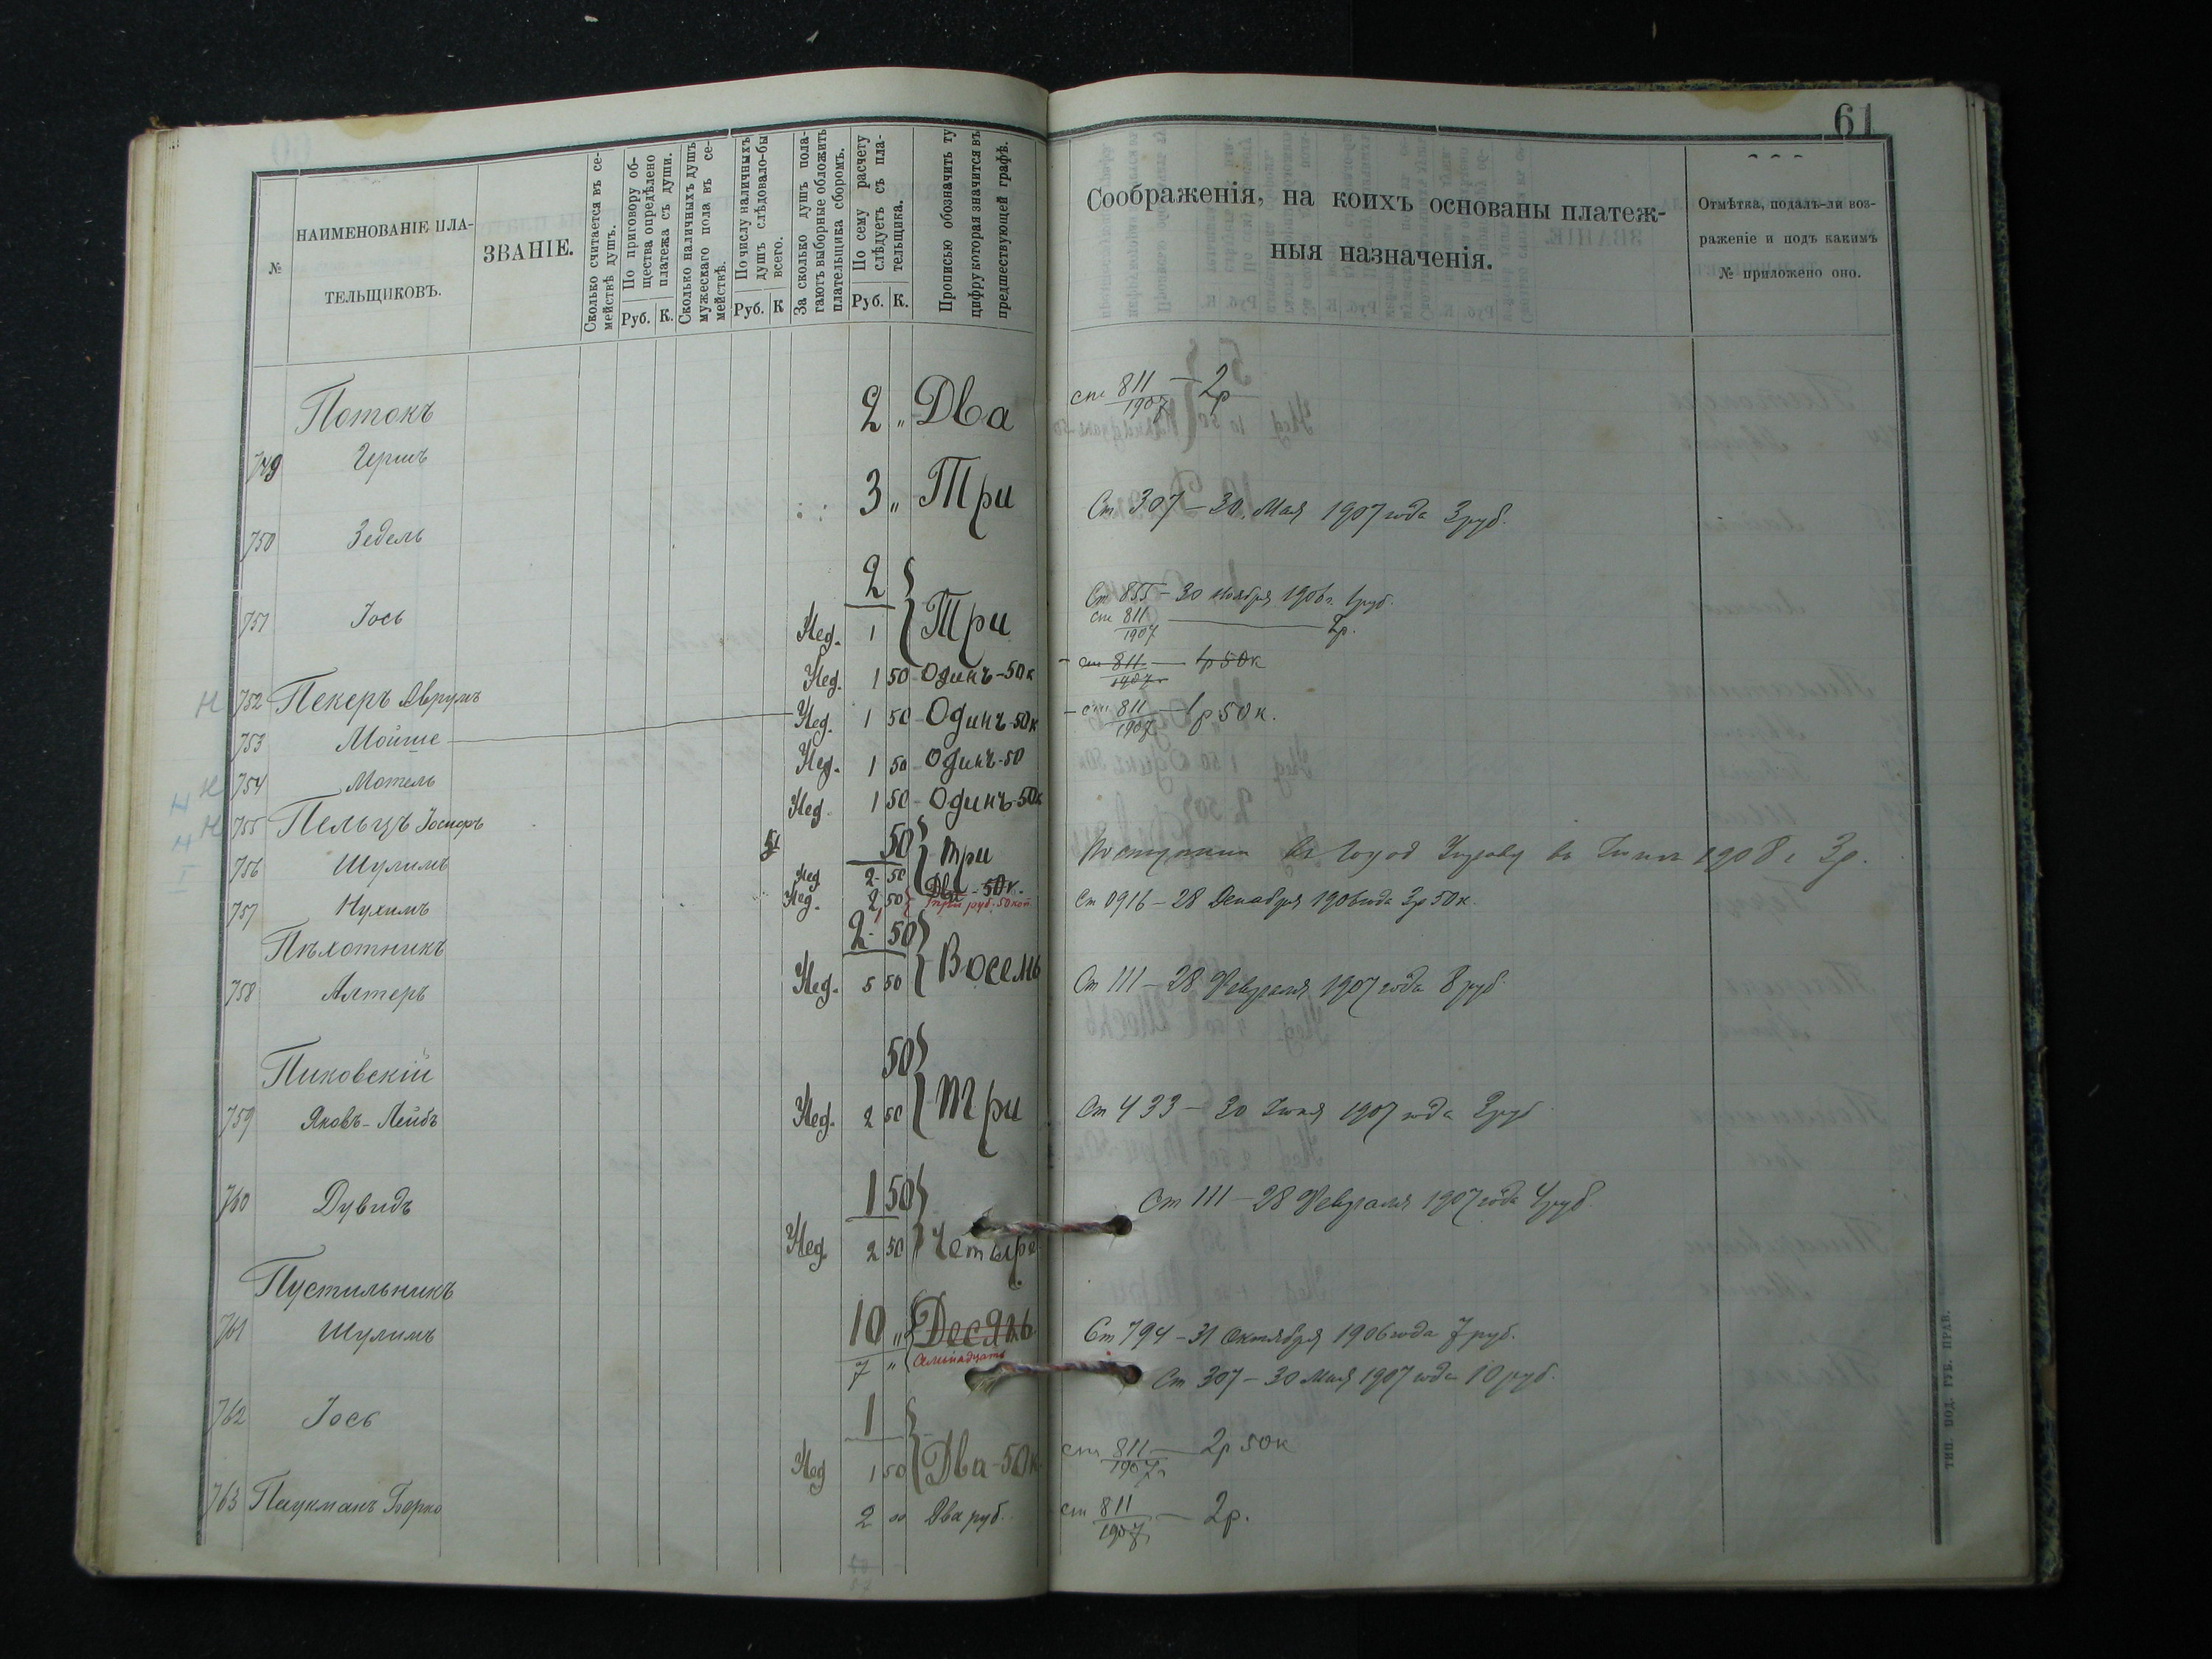 61
№
НАИМЕНОВАНІЕ ПЛА-
ТЕЛЬЩИКОВЪ.
ЗВАНІЕ.
Сколько считается въ се-
мействѣ душъ.
По приговору об-
щества опредѣлено
платежа съ души.
Руб. К.
Сколько наличныхъ душъ
мужескаго пола въ се-
мействѣ.
По числу наличныхъ
душъ слѣдовало-бы
всего.
Руб. К
За сколько душъ пола-
гаютъ выборные обложить
плательщика сборомъ.
По сему расчету
слѣдуетъ съ пла-
тельщика.
Руб. К.
Прописью обозначить ту
цифру которая значится въ
предшествующей графѣ.
Соображенія, на коихъ основаны платеж-
ныя назначенія.
Отмѣтка, подалъ-ли воз-
раженіе и подъ какимъ
№ приложено оно.
Потокъ
749 Гершъ 2 " Два ст 811/1907 — 2р
750 Зедель 3 " Три Ст 307 — 30 Мая 1907 года 3 руб.
751 Іось 2
Нед. 1 Три
Ст 855 — 30 Ноября 1906 г. 1 руб.
ст 811/1907 — 2р.
Н 752 Пекеръ Аврумъ Нед. 1 50 Одинъ-50к ст 811/1907 — 1р 50к
753 Мойше Нед. 1 50 Одинъ-50к ст 811/1907 — 1р 50к.
Н 754 Мотель Нед. 1 50 Одинъ-50
Н 755 Пельцъ Нед. 1 50 Одинъ-50к
756 Шулимъ 50
Нед 2 50 Три
въ 1908 г 3р.
757 Нухимъ Нед. 2 50 Два - 50к.
Три руб. 50 коп.
Ст 0916 — 28 Декабря 1906 года 3р 50к.
Пѣхотникъ
758 Алтеръ 2 50
Нед. 5 50 Восемь
Ст 111 — 28 Февраля 1907 года 8 руб.
Пиковскій
759 Яковъ-Лейбъ 50
Нед. 2 50 Три
Ст 433 — 30 Іюня 1907 года 3 руб
760 Дувидъ 1 50
Нед. 2 50 Четыре
Ст 111 — 28 Февраля 1907 года 4 руб
Пустильникъ
761 Шулимъ 10 " Десять
7 " Семнадцать
Ст 794 — 31 Октября 1906 года 7 руб.
Ст 307 — 30 Мая 1907 года 10 руб.
762 Іось 1
Нед 1 50 Два-50к
ст 811/1907 — 2р 50к
763 Паукманъ Борко 2 " Два руб. ст 811/1907 — 2р.
ТИП. ПОД. ГУБ. ПРАВ.